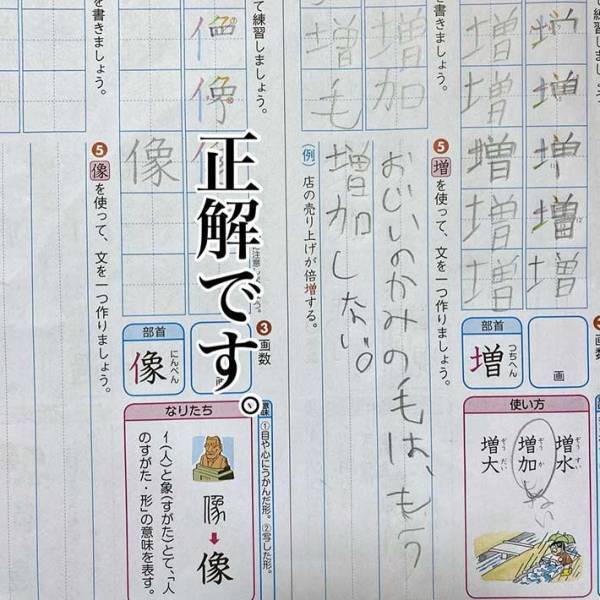 増
増
増
増
増
増
増
増
増
増
増加
増毛
❺増を使って、文を一つ作りましょう。
おじいのかみの毛は、もう
増加しない。
(例) 店の売り上げが倍増する。
部首
増
つちへん
画
使い方
増水
ぞうすい
増加
ぞうか
しない
増大
ぞうだい
て練習しましょう。
を書きましょう。
像
❺像を使って、文を一つ作りましょう。
正解です。
❸画数
部首
像
にんべん
画
意味
①目や心にうかんだ形。②写した形。
なりたち
像
イ(人)と象(すがた)とで、「人
のすがた・形」の意味を表す。